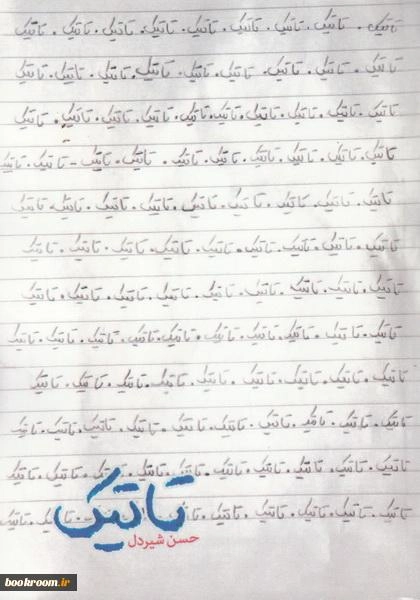 تاتیک . تاتیک . تاتیک . تاتیک . تاتیک . تاتیک . تاتیک . تاتیک . تاتیک
تاتیک . تاتیک . تاتیک . تاتیک . تاتیک . تاتیک . تاتیک . تاتیک . تاتیک
تاتیک . تاتیک . تاتیک . تاتیک . تاتیک . تاتیک . تاتیک . تاتیک . تاتیک . تاتیک
تاتیک . تاتیک . تاتیک . تاتیک . تاتیک . تاتیک . تاتیک . تاتیک - تاتیک . تاتیک
تاتیک . تاتیک . تاتیک . تاتیک . تاتیک . تاتیک . تاتیک . تاتیک . تاتیک
تاتیک . تاتیک . تاتیک . تاتیک . تاتیک . تاتیک . تاتیک . تاتیک . تاتیک
تاتیک . تاتیک . تاتیک . تاتیک . تاتیک . تاتیک . تاتیک . تاتیک . تاتیک
تاتیک . تاتیک . تاتیک . تاتیک . تاتیک . تاتیک . تاتیک . تاتیک . تاتیک . تاتیک
تاتیک . تاتیک . تاتیک . تاتیک . تاتیک . تاتیک . تاتیک . تاتیک . تاتیک
تاتیک . تاتیک . تاتیک . تاتیک . تاتیک . تاتیک . تاتیک . تاتیک . تاتیک . تاتیک
تاتیک . تاتیک . تاتیک . تاتیک . تاتیک . تاتیک . تاتیک . تاتیک . تاتیک . تاتیک
تاتیک . تاتیک . تاتیک . تاتیک . تاتیک . تاتیک
تاتیک
حسن شیردل
bookroom.ir